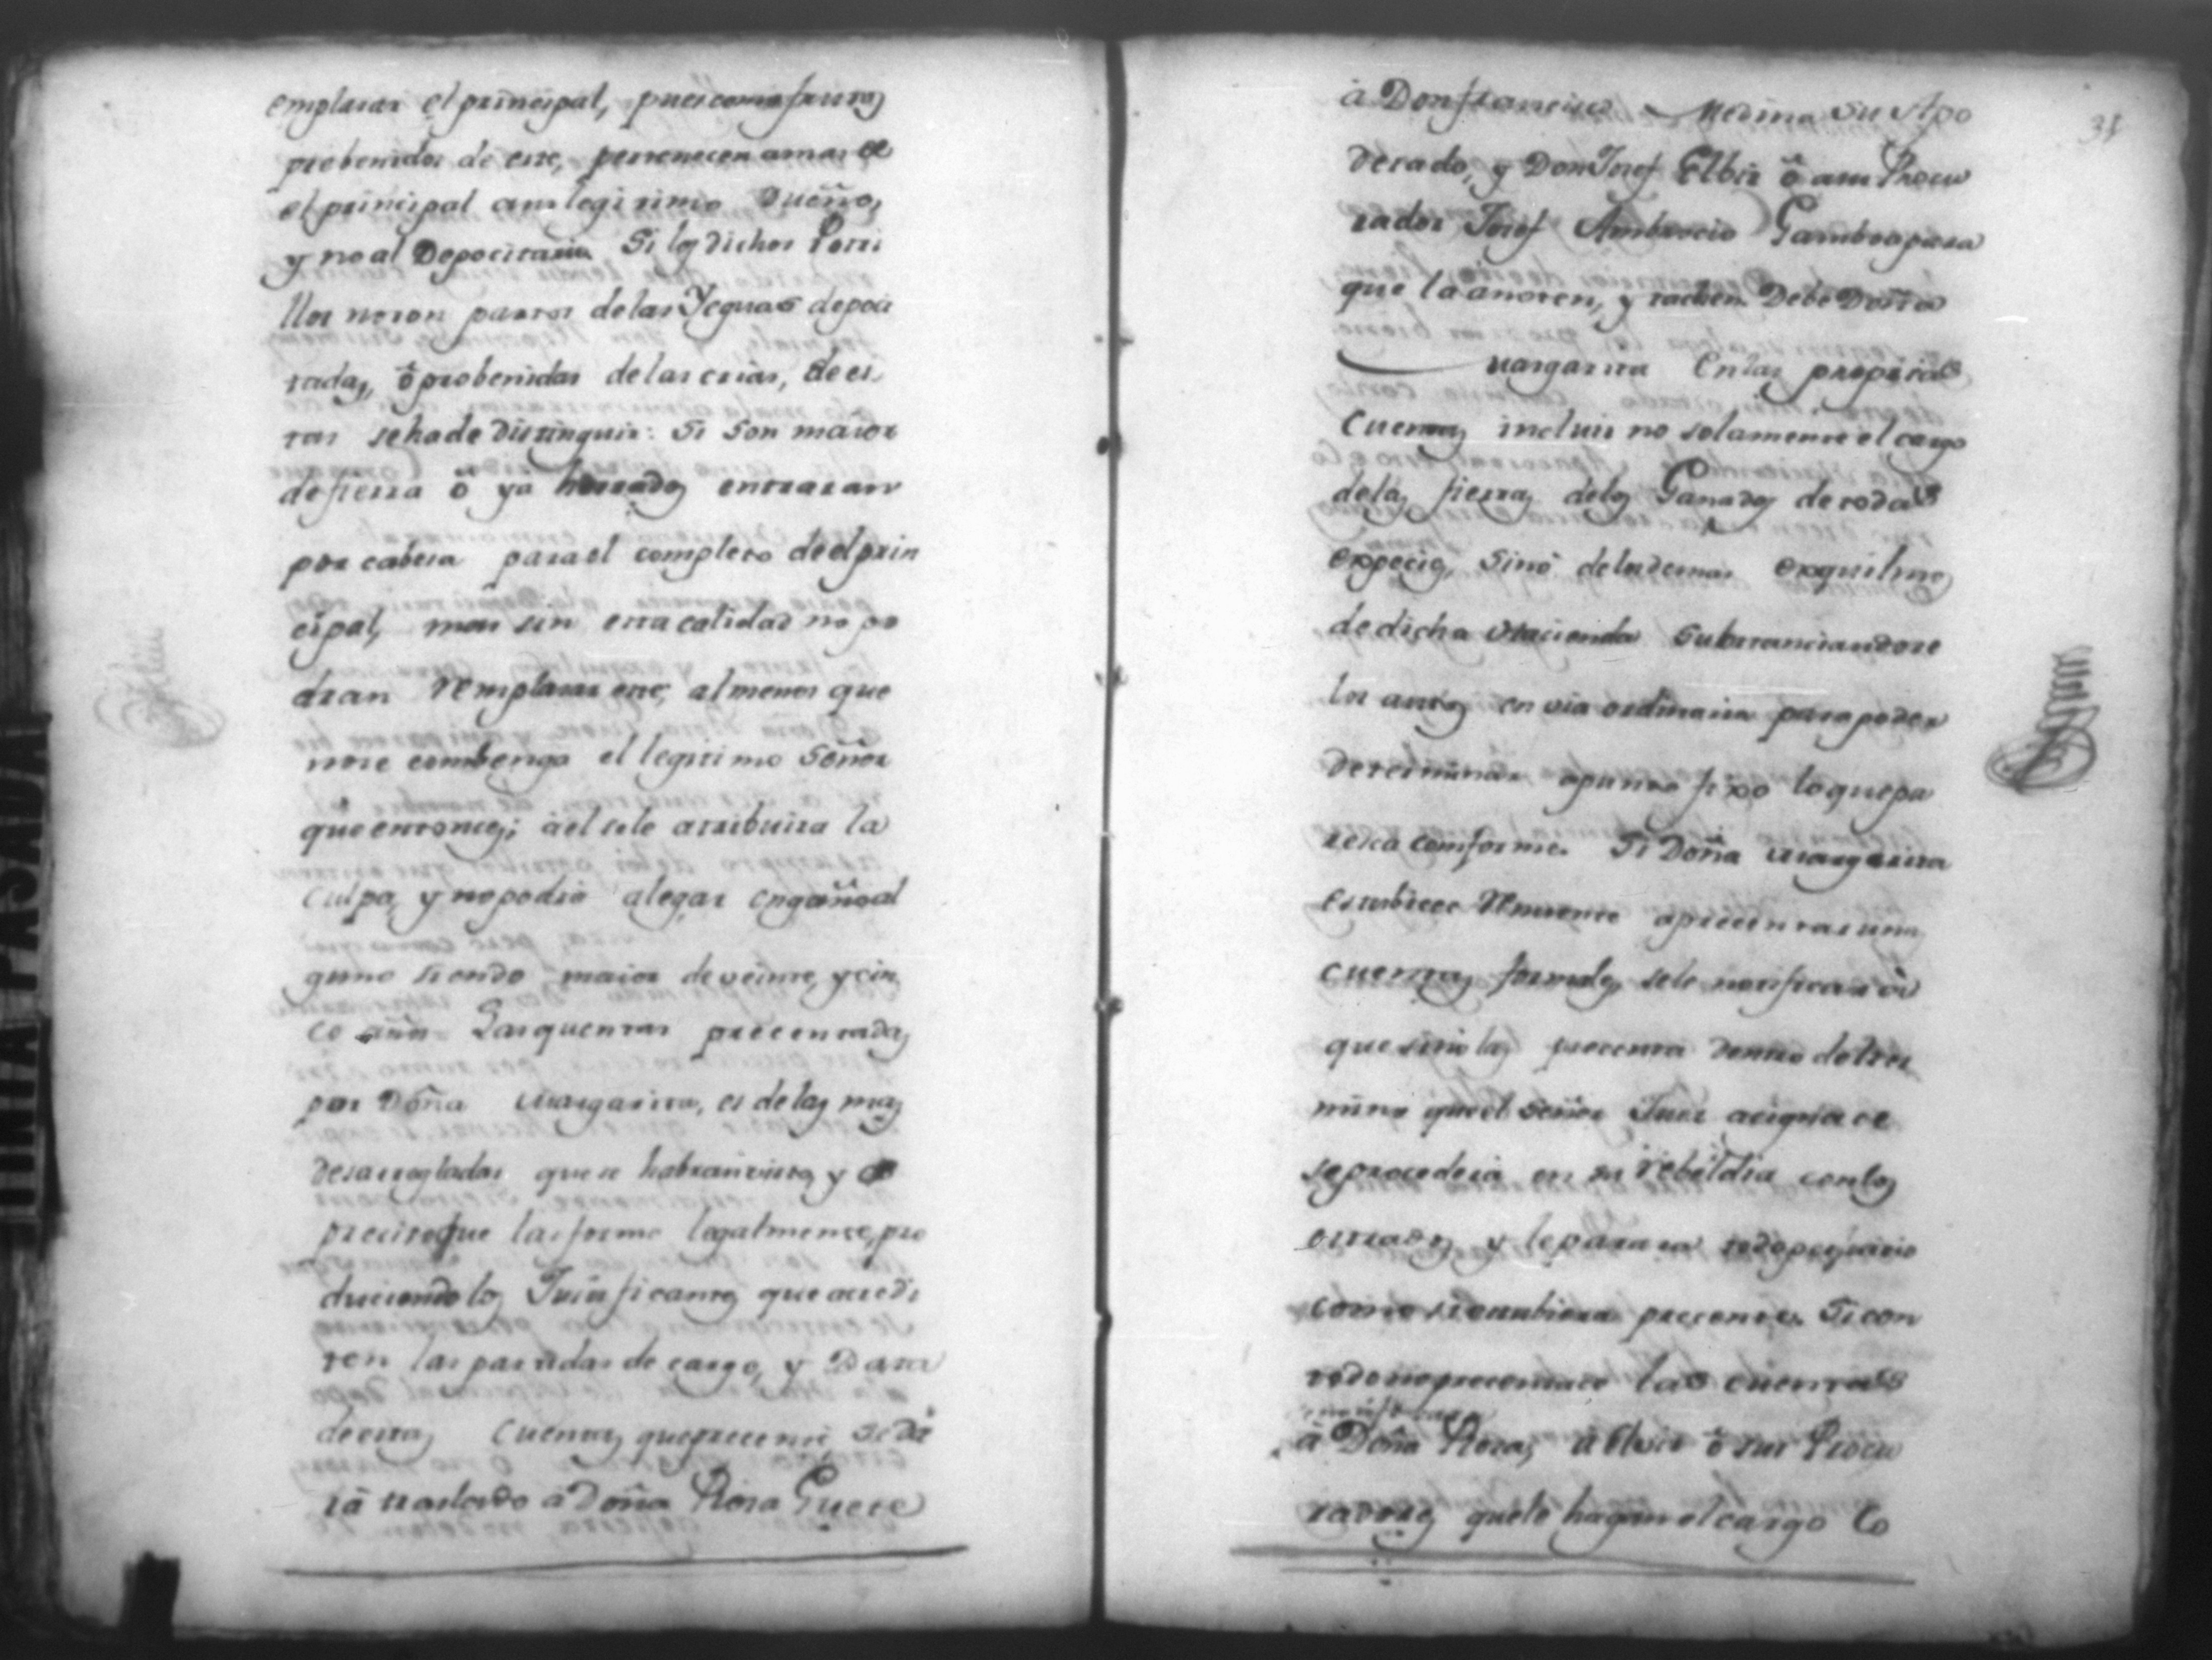 emplasar el principal, pues como frutos
probenidos de este, pertenecen a mas de
el principal a su legitimo Dueño,
y no al Depocitario Si los dichos Potri
llos no son partos de las Yeguas depoci
tadas, ô probenidos de las crias, de es
tas se ha de distinguir: Si son maior
de fierra ô ya herrados entraran
por cabesa para el completo de el prin
cipal, mas sin esta calidad no po
dran remplasar este, al menos que
no se combenga el legitimo Señor
que entonces; à el se le atribuira la
culpa, y no podra alegar engaño al
guno siendo maior de veinte, y cin
co años Las quentas precentadas
por Doña Margarita, es de las mas
desarregladas que se habran visto, y es
preciso que las forme legalmente, pro
duciendo los Justificantes que acredi
ten las partidas de cargo, y Data
de estas cuentas que precente, se da
rà traslado à Doña Rosa Guere
à Don Francisco Medina su Apo
derado, y Don Josef Elbir ô a su Procu
rador Josef Ambrocio Gamboa para
que la anoten, y tachen Debe Doña
Margarita en las propias
cuentas incluir no solamente el cargo
de las fierras de los Ganados de todas
especies, sinò de los demas exquilmos
de dicha Hacienda substanciandose
los autos en via ordinaria para poder
determinar a punto fixo lo que pa
resca comforme. Si Doña Margarita
estubiere renuente a precentar unas
cuentas formales, se le notificarà
que si no las precenta dentro del ter
mino que el señor Juez acignare
se procederà en su rebeldia con los
estrados y le parara todo perjuicio
como si estubiera precente. Si con
todo no precentare las cuentas
à Doña Rosa, à Elvir ô sus Procu
radores que le hagan el cargo Co
31